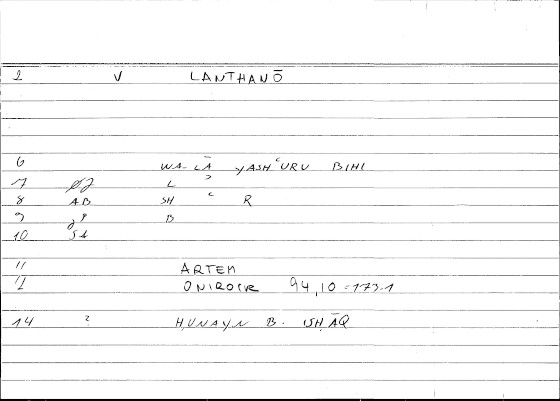 1 V LANTHANŌ
6 WA-LĀ YASHʿURU BIHI
7 L ʾ
8 AB SH ʿ R
9 B
10
11 ARTEM
12 ONIROCR 94,10
14 ? ḤUNAYN B. ISḤĀQ